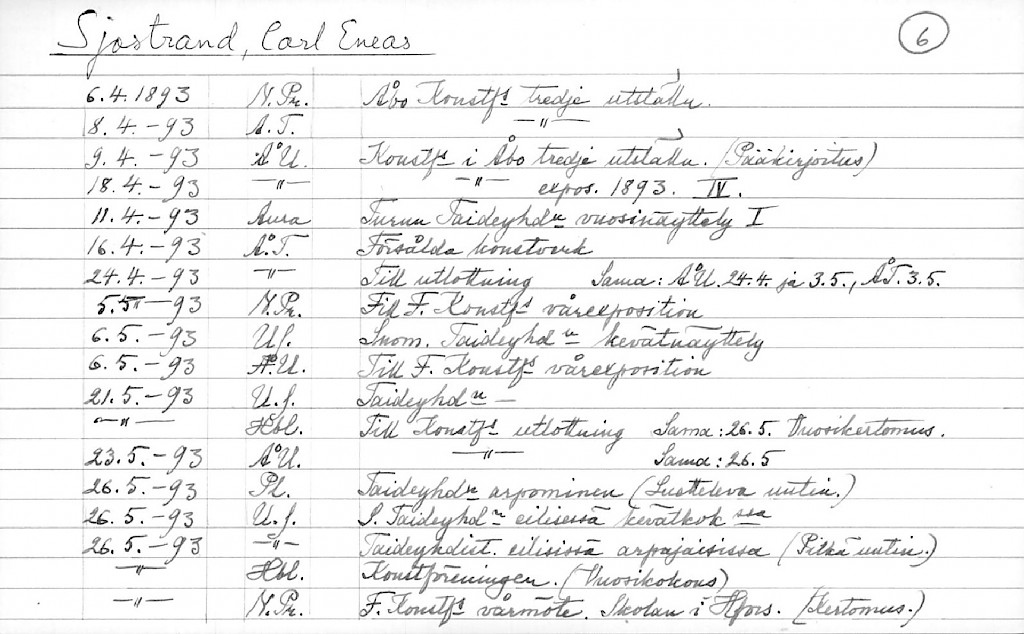 Sjöstrand, Carl Eneas 6
6.4.1893 N.Pr. Åbo Konstfs tredje utställn.
8.4.-93 A.T. -"-
9.4.-93 ÅU. Konstfs i Åbo tredje utställn. (Pääkirjoitus)
18.4.-93 -"- -"- expos. 1893. IV.
11.4.-93 Aura Turun Taideyhdn vuosinäyttely I
16.4.-93 Å.T. Försålda konstverk
24.4.-93 -"- Till utlottning Sama: ÅU. 24.4. ja 3.5., ÅT. 3.5.
5.5.-93 N.Pr. Fik F. Konstfs vårexposition
6.5.-93 U.S. Suom. Taideyhdn kevätnäyttely
6.5.-93 Å.U. Till F. Konstfs vårexposition
21.5.-93 U.S. Taideyhdn -
-"- Hbl. Till Konstfs utlottning Sama: 26.5. Vuosikertomus.
23.5.-93 ÅU. -"- Sama: 26.5
26.5.-93 Pl. Taideyhdn arpominen (Luetteleva uutin.)
26.5.-93 U.S. S. Taideyhdn eilisessä kevätkok ssa
26.5.-93 -"- Taideyhdist. eilisissä arpajaisissa (Pitkä uutin.)
-"- Hbl. Konstföreningen. (Vuosikokous)
-"- N.Pr. F. Konstfs vårmöte. Skolan i Hfors. (Kertomus.)